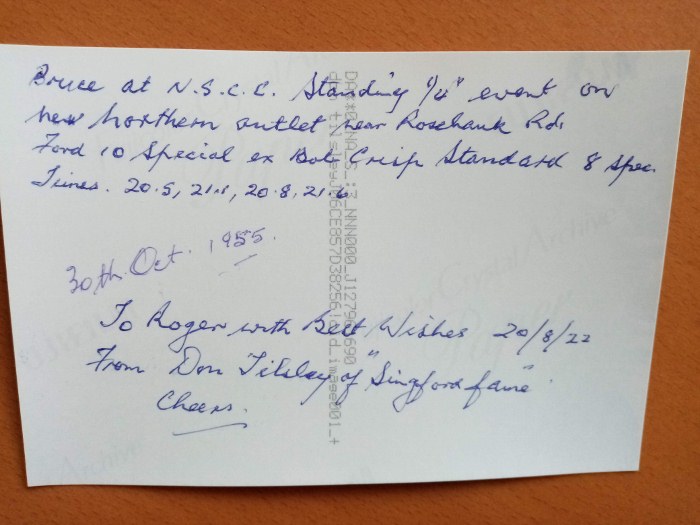 Bruce at N.S.C.C. Standing "1/4" event on
new Northern outlet near Rosebank Rd.
Ford 10 Special ex Bob Crisp Standard 8 Spec.
Times. 20.5, 21.1, 20.8, 21.6
30th Oct. 1955.
To Roger with Best Wishes 20/8/22
From Don of "Singford fame"
Cheers.